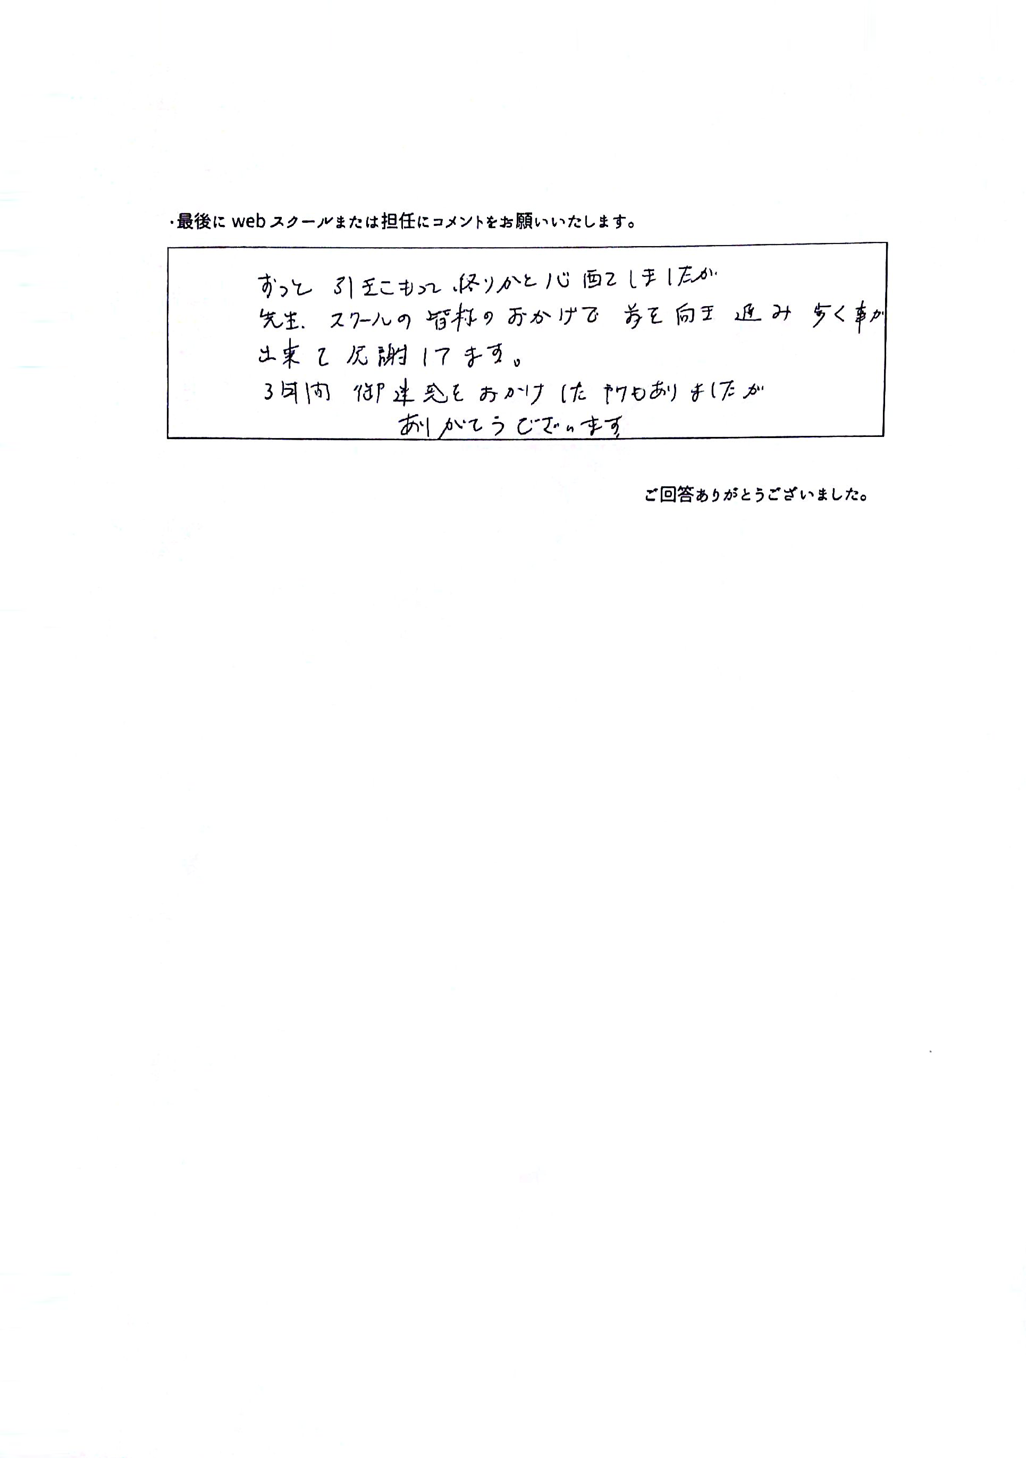 ・最後に webスクールまたは担任にコメントをお願いいたします。
ずっと 引きこもって 終りかと心配しましたが
先生、スクールの皆様のおかげで 前を向き 進み 歩く事が
出来て感謝してます。
3年間 御迷惑をおかけした 事もありましたが
ありがとうございます
ご回答ありがとうございました。